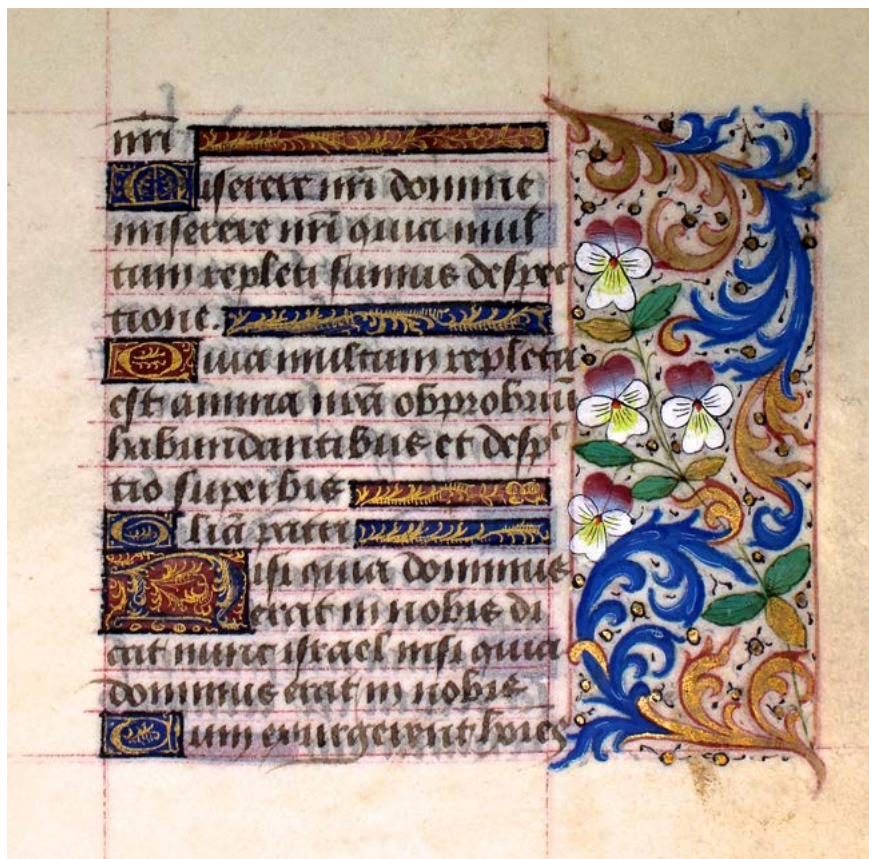 nr̄i
Miserere nr̄i domine
miserere nr̄i quia mul
tum repleti sumus despec
tione.
Quia multum repleta
est anima nr̄a obprobriū
habundantibus et desp
tio superbis
Gliā patri
Nisi quia dominus
erat in nobis di
cat nunc israel nisi quia
dominus erat in nobis
Cum exurgerent hoīes